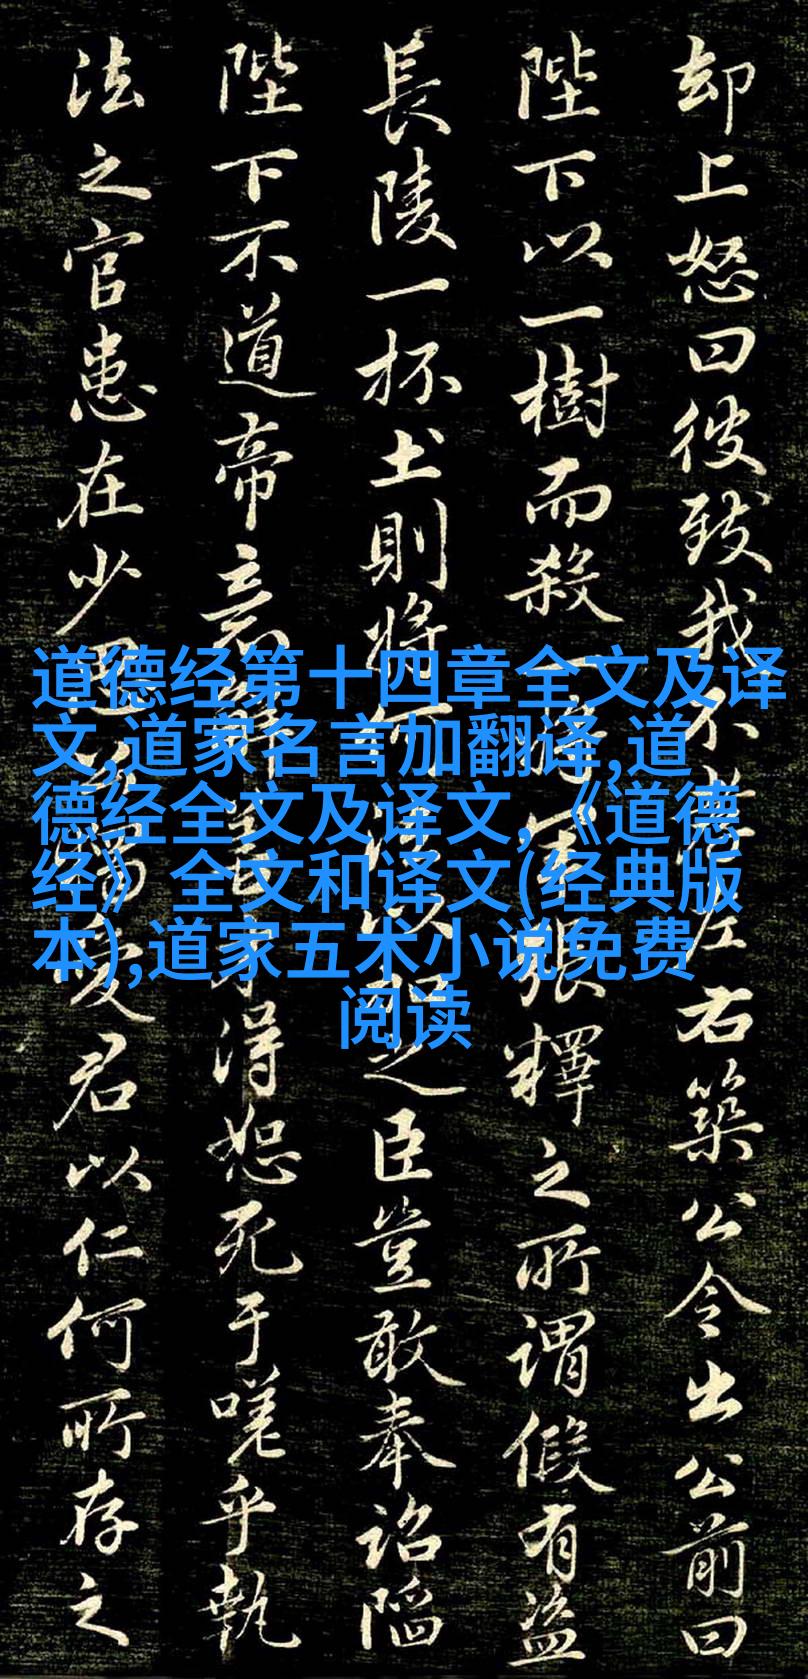 却上怒曰彼致我不左右築公令出公前曰
陛下以一樹而殺一將軍張釋之所謂假有盗
長陵一杯土則將何法以之臣豈敢奉詔陷
陛下不道帝意得恕死于嗟乎執
法之官患在少恩獨愛君以仁何所存之
道德经第十四章全文及译
文,道家名言加翻译,道
德经全文及译文,《道德
经》全文和译文(经典版
本),道家五术小说免费
阅读